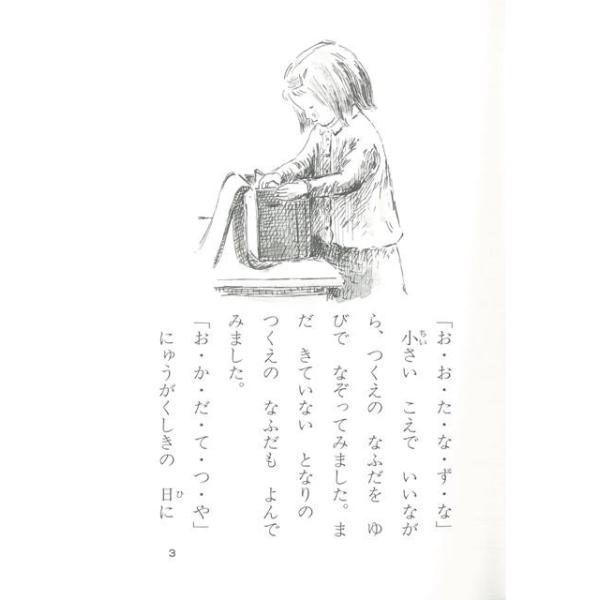 「お・お・た・な・ず・な」
小さい こえで いいなが
ら、つくえの なふだを ゆ
びで なぞってみました。ま
だ きていない となりの
つくえの なふだも よんで
みました。
「お・か・だ・て・つ・や」
にゅうがくしきの 日に
3